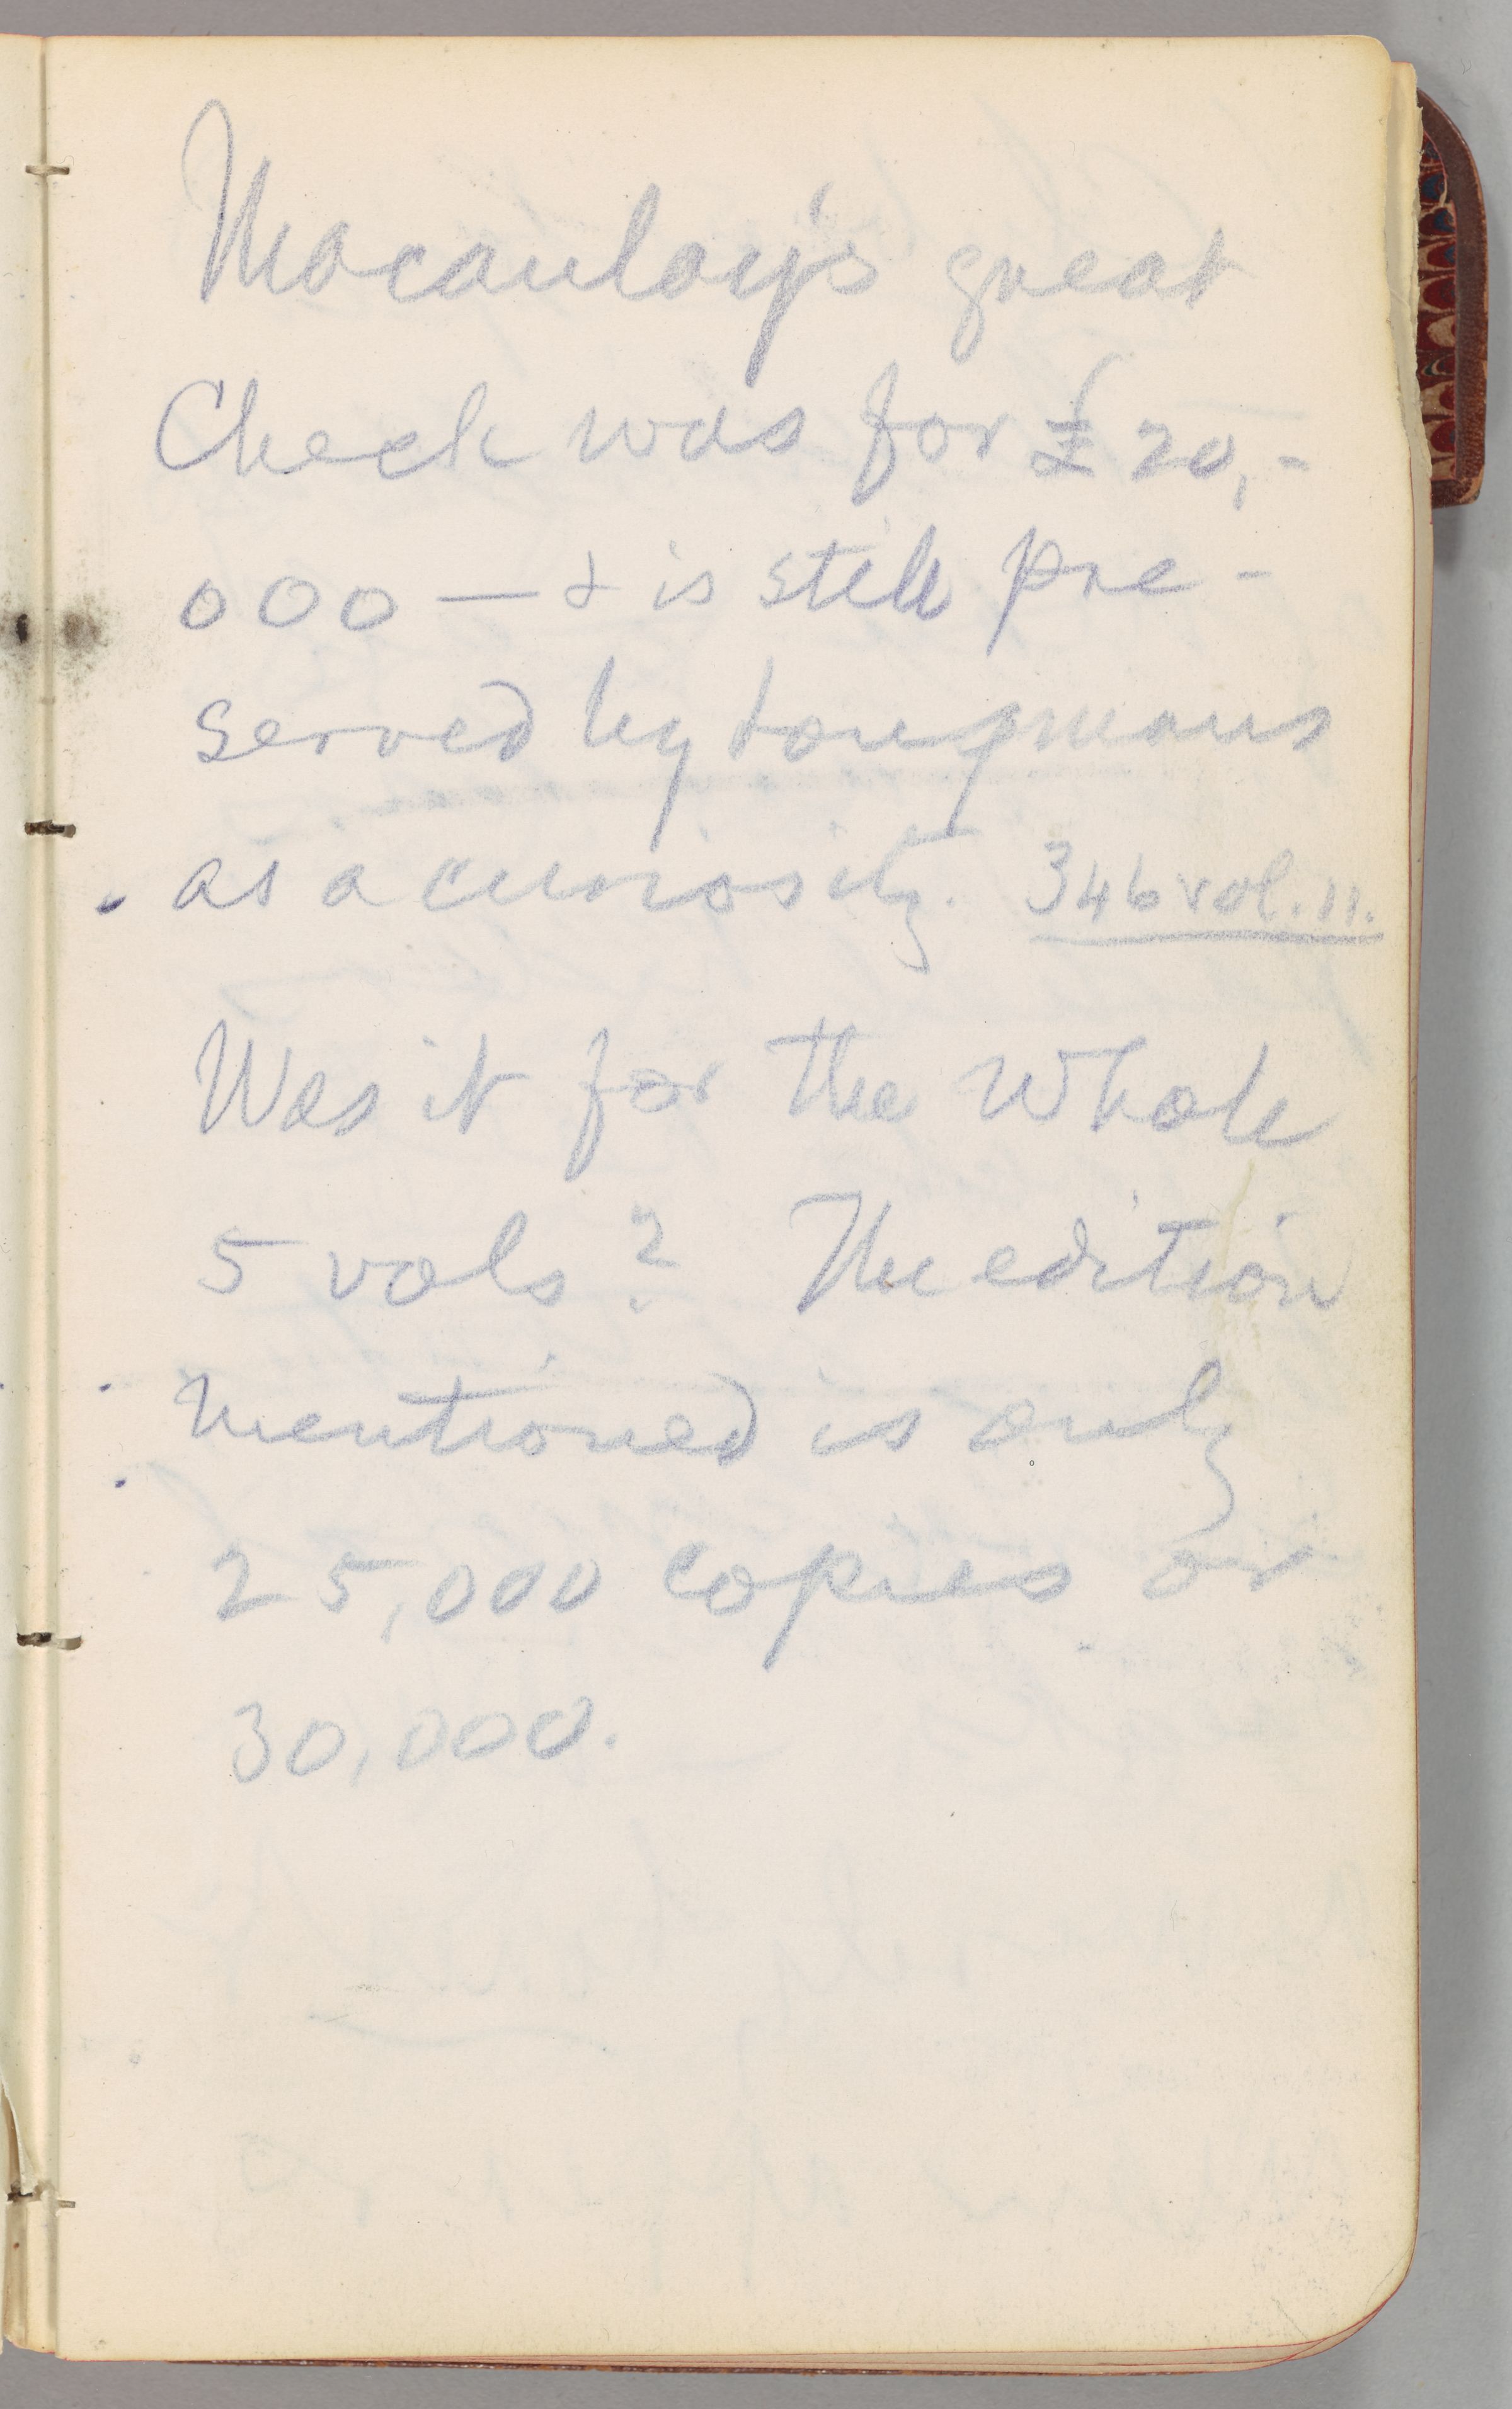 Macaulay's great
Check was for £20,-
000 — & is still pre-
served by Longmans
as a curiosity. 346 vol. 11.
Was it for the whole
5 vols? The edition
mentioned is only
25,000 copies or
30,000.